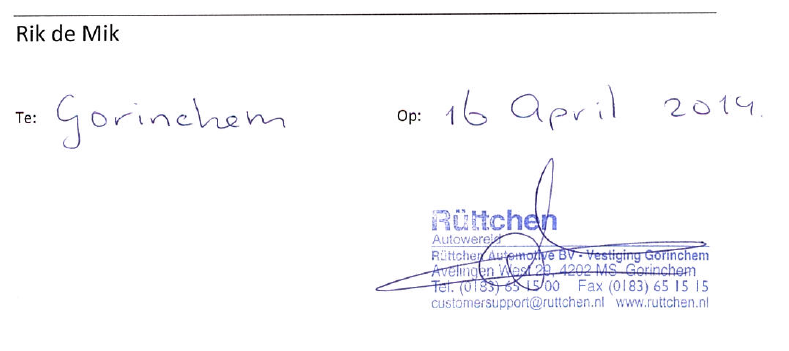 Rik de Mik
Te: Gorinchem Op: 16 April 2014.
Rüttchen
Autowereld
Rüttchen Automotive BV - Vestiging Gorinchem
Avelingen West 29, 4202 MS Gorinchem
Tel. (0183) 65 15 00 Fax (0183) 65 15 15
customersupport@ruttchen.nl www.ruttchen.nl